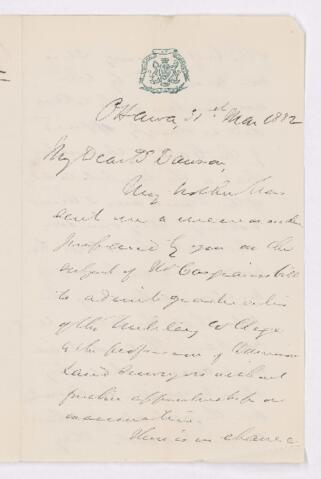 Ottawa, 31st Mar 1882
My Dear Dr Dawson,
My brother has
sent me a memorandum
prepared by you on the
subject of Mr
bill
to admit graduates
of the Military College
to the profession of Dominion
Land Surveyors without
further apprenticeship or
examination.
There is no chance